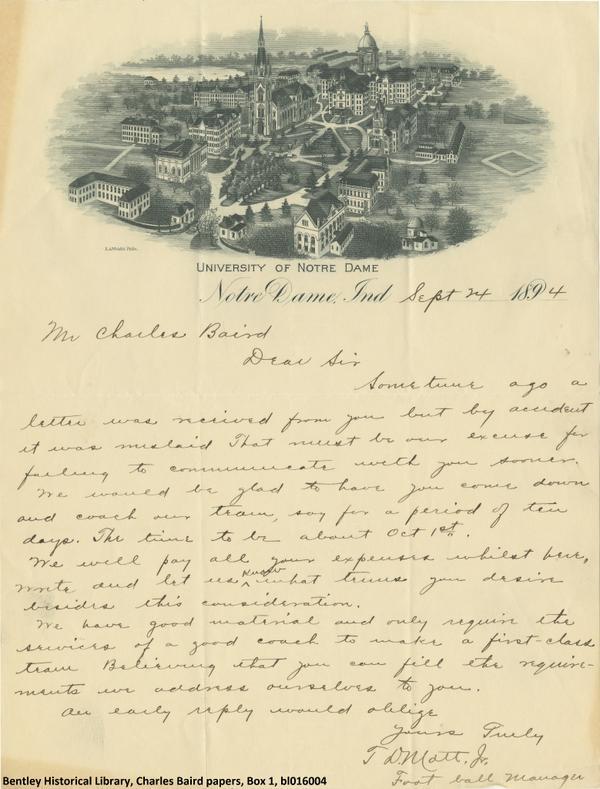 UNIVERSITY OF NOTRE DAME
Notre Dame, Ind Sept 24 1894
Mr Charles Baird
Dear Sir
Sometime ago a
letter was recived from you but by accident
it was mislaid That must be our excuse for
failing to communicate with you sooner.
We would be glad to have you come down
and coach our team, say for a period of ten
days. The time to be about Oct 1st.
We will pay all your expenses whilst here,
write and let us know what terms you desire
besides this consideration.
We have good material and only require the
services of a good coach to make a first-class
team Believing that you can fill the require-
ments we address ourselves to you.
An early reply would oblige
Yours Truly
T D Mott, Jr.
Foot ball Manager
Bentley Historical Library, Charles Baird papers, Box 1, bl016004